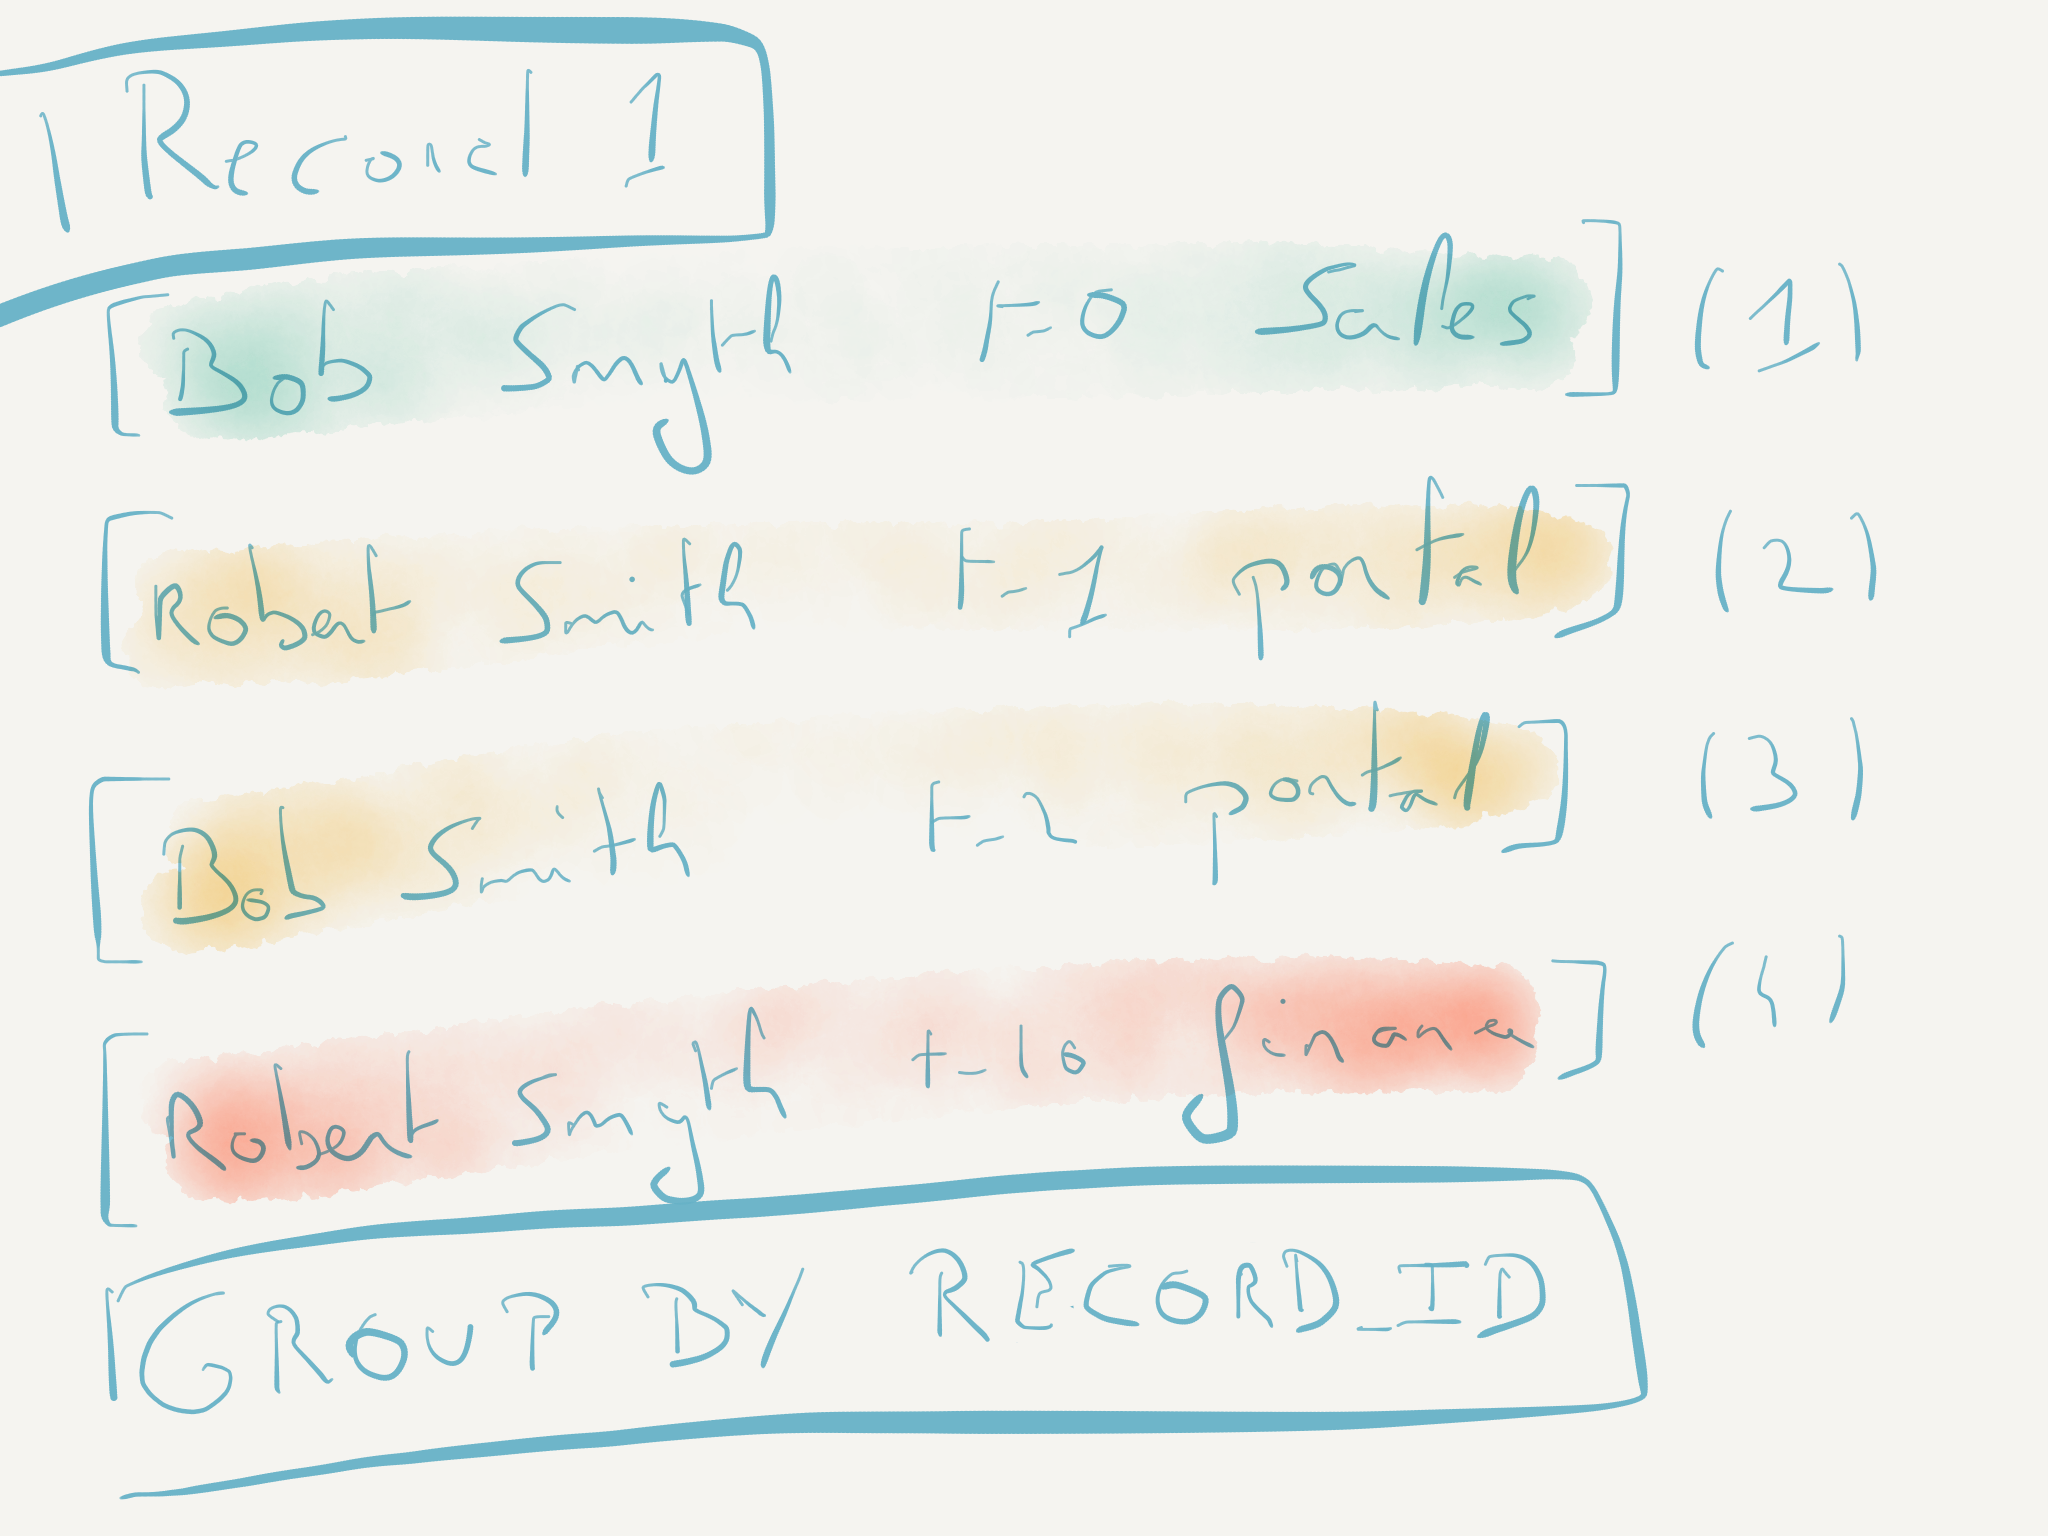 Record 1
[Bob Smyth t_0 Sales] (1)
[Robert Smith t_1 portal] (2)
[Bob Smith t_2 portal] (3)
[Robert Smyth t_10 finance] (4)
GROUP BY RECORD_ID